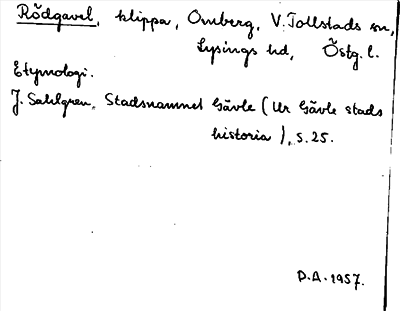 Rödgavel, klippa, Omberg, V. Tollstads sn,
Lysings hd, Östg. l.
Etymologi.
J. Sahlgren, Stadsnamnet Gävle (Ur Gävle stads
historia), s. 25.
D.A. 1957.